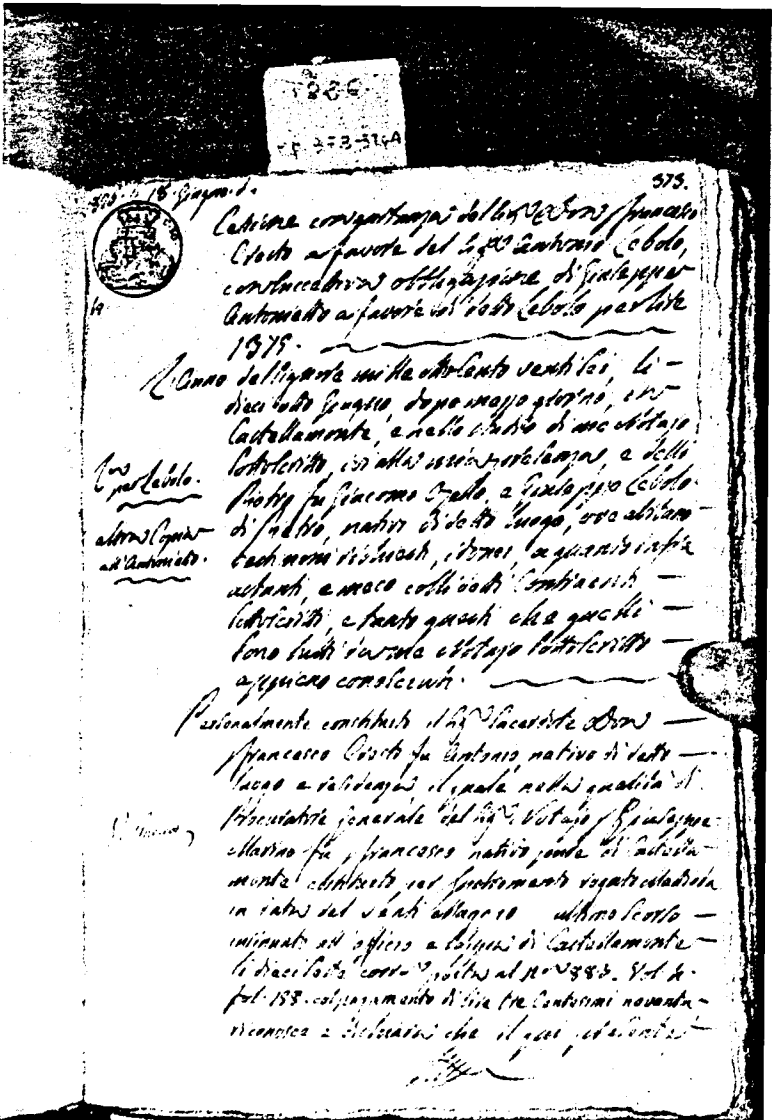 1826.
ff 373-374A
373.
18 Giugno.
Cessione con quitanza del Sig.r Don Francesco
a favore del Sig.r Antonio Lebolo,
con successiva obbligazione di Giuseppe
Antonietto a favore di detto Lebolo per lire
1375.
L'Anno del Signore mille ottocento ventisei, li
dieciotto Giugno, dopo mezzo giorno, in
Castellamonte, e nello studio di me Notajo
sottoscritto, ed alla mia presenza, e delli
Pietro fu Giacomo, e Giuseppe Lebolo
di Pietro, nativi di detto luogo, ove abitano
testimoni richiesti, idonei, a quanto infra
astanti, e meco colli detti Contraenti
sottoscritti, e tanto questi che quelli
sono tutti da me Notajo sottoscritto
appieno conosciuti.
per Lebolo.
altra Copia
all'Antonietto.
Personalmente constituito il Sig.r Sacerdote Don
Francesco fu Antonio, nativo di detto
luogo e residenza il quale nella qualità di
Procuratore generale del Sig.r Notajo Giuseppe
Marino fu Francesco nativo pure di Castella-
monte constituito per Instromento rogato
in data del venti Maggio ultimo scorso
insinuato all'officio di Castellamonte
li diecisette corr.e al N.o 883. Vol.
fol. 188. col pagamento di lire tre Centesimi novanta
riconosce e dichiara che il qui presente